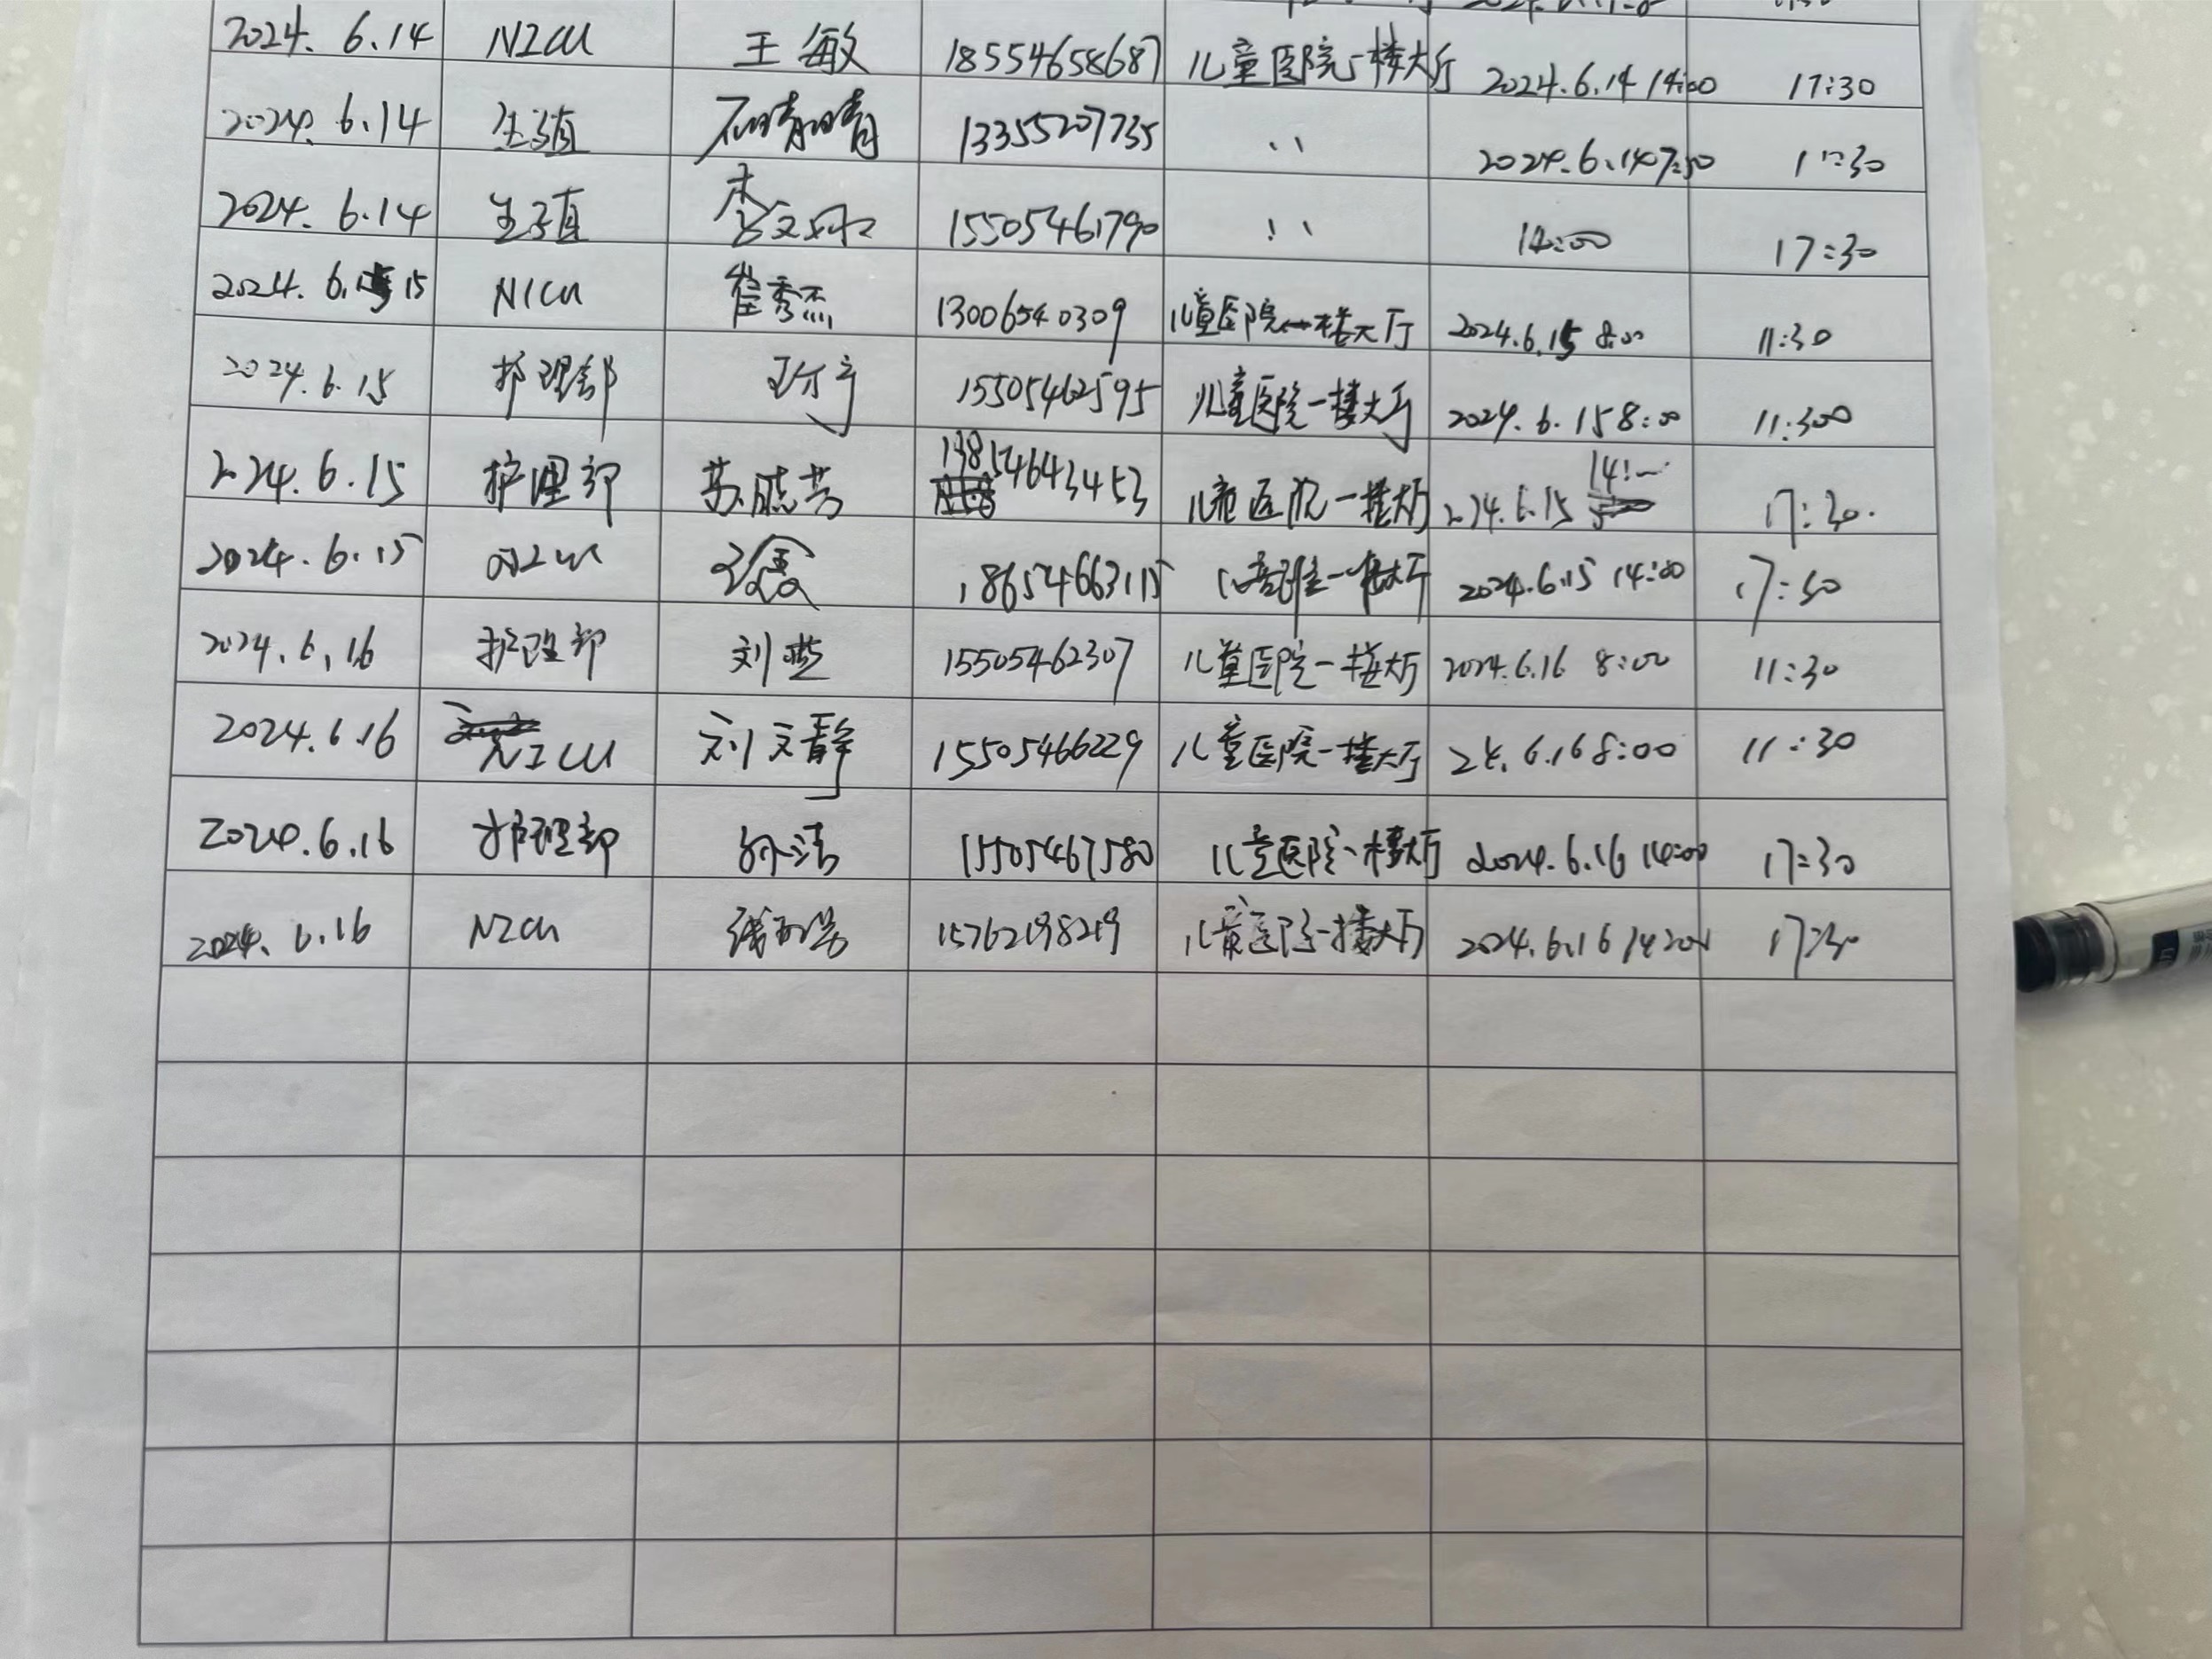 2024. 6.14 NICU 王敏 18554658687 儿童医院一楼大厅 2024.6.14 14:00 17:30
2024. 6.14 生殖 石晴晴 13355207735 、、 2024.6.14 7:30
2024. 6.14 生殖 李文 15505461790 、、 14:00 17:30
2024. 6. 15 NICU 崔秀杰 13006540309 儿童医院一楼大厅 2024.6.15 8:00 11:30
2024.6.15 护理部 15505462595 儿童医院一楼大厅 2024.6.15 8:00 11:300
2024.6.15 护理部 苏晓芳 13854643453 儿童医院一楼大厅 2024.6.15 14:00 17:30.
2024.6.15 NICU 18654663115 一楼大厅 2024.6.15 14:00 17:30
2024.6.16 护理部 刘 15505462307 儿童医院一楼大厅 2024.6.16 8:00 11:30
2024.6.16 NICU 刘文静 15505466229 儿童医院一楼大厅 24.6.16 8:00 11:30
2024.6.16 护理部 孙洁 15505467580 儿童医院一楼大厅 2024.6.16 14:00 17:30
2024.6.16 NICU 15762198219 儿童医院一楼大厅 2024.6.16 17:30